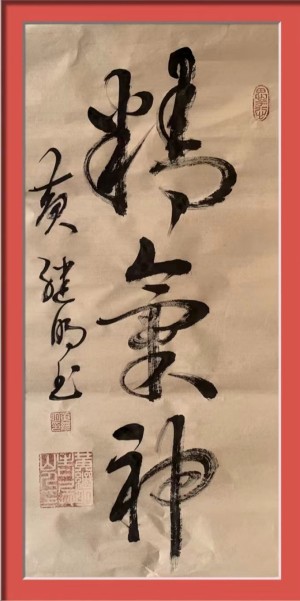 精氣神
黄继明书